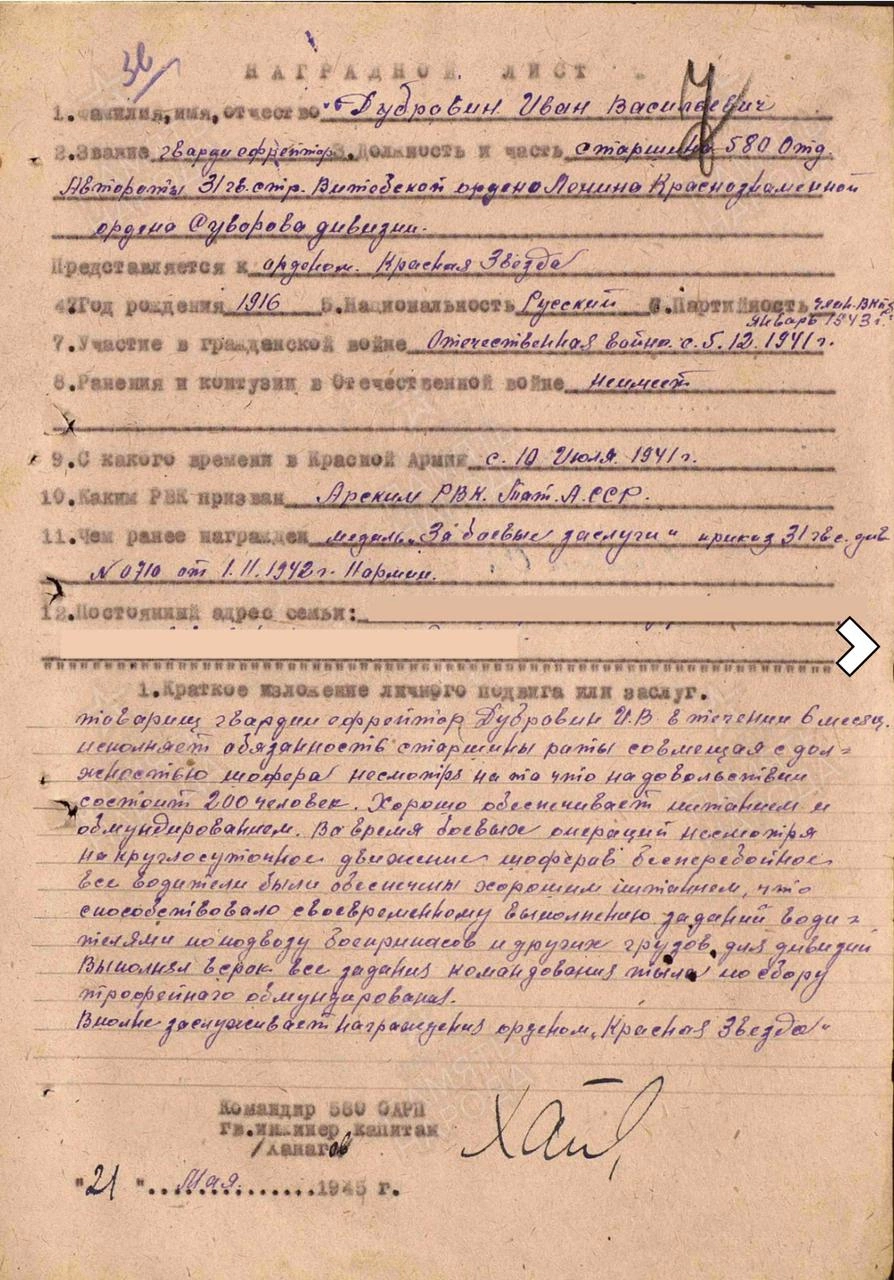 36
НАГРАДНОЙ ЛИСТ
1. Фамилия, имя, отчество Дубровин Иван Васильевич
2. Звание гвардии ефрейтор 3. Должность и часть старшина 580 Отд.
Автороты 31 гв. стр. Витебской ордена Ленина Краснознаменной
ордена Суворова дивизии.
Представляется к орденом. Красная Звезда
4. Год рождения 1916 5. Национальность Русский 6. Партийность член ВКПб
январь 1943 г.
7. Участие в гражданской войне Отечественная война. с. 5. 12. 1941 г.
8. Ранения и контузии в Отечественной войне неимеет
9. С какого времени в Красной Армии с. 10 Июля. 1941 г.
10. Каким РВК призван Арским РВК. Тат. А. ССР.
11. Чем ранее награжден медаль „За боевые заслуги" приказ 31 гв с. див
N 0710 от 1. 11. 1942 г.
12. Постоянный адрес семьи:
1. Краткое изложение личного подвига или заслуг.
товарищ гвардии ефрейтор Дубровин И.В. в течении 6 месяц.
исполняет обязанность старшины роты совмещая с дол=
жностью шофера несмотря на то что на довольствии
состоит 200 человек. Хорошо обеспечивает питанием и
обмундированием. Во время боевых операций несмотря
на круглосуточное движение шоферов бесперебойное
все водители были обеспечены хорошим питанием, что
способствовало своевременному выполнению заданий води=
телями по подвозу боеприпасов и других грузов, для дивизии
Выполнял в срок все задания командования тыла по сбору
трофейного обмундирования.
Вполне заслуживает награждения орденом „Красная Звезда"
Командир 580 ОАРП
гв. инженер капитан
/Ханагов
"21" Мая. 1945 г.